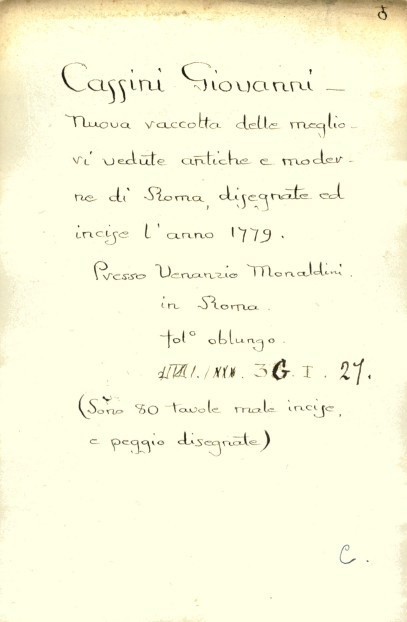 Cassini Giovanni —
Nuova raccolta delle meglio-
ri vedute antiche e moder-
ne di Roma, disegnate ed
incise l'anno 1779.
Presso Venanzio Monaldini.
in Roma.
fol° oblungo.
3 G. I. 27.
(Sono 80 tavole male incise,
e peggio disegnate)
C.